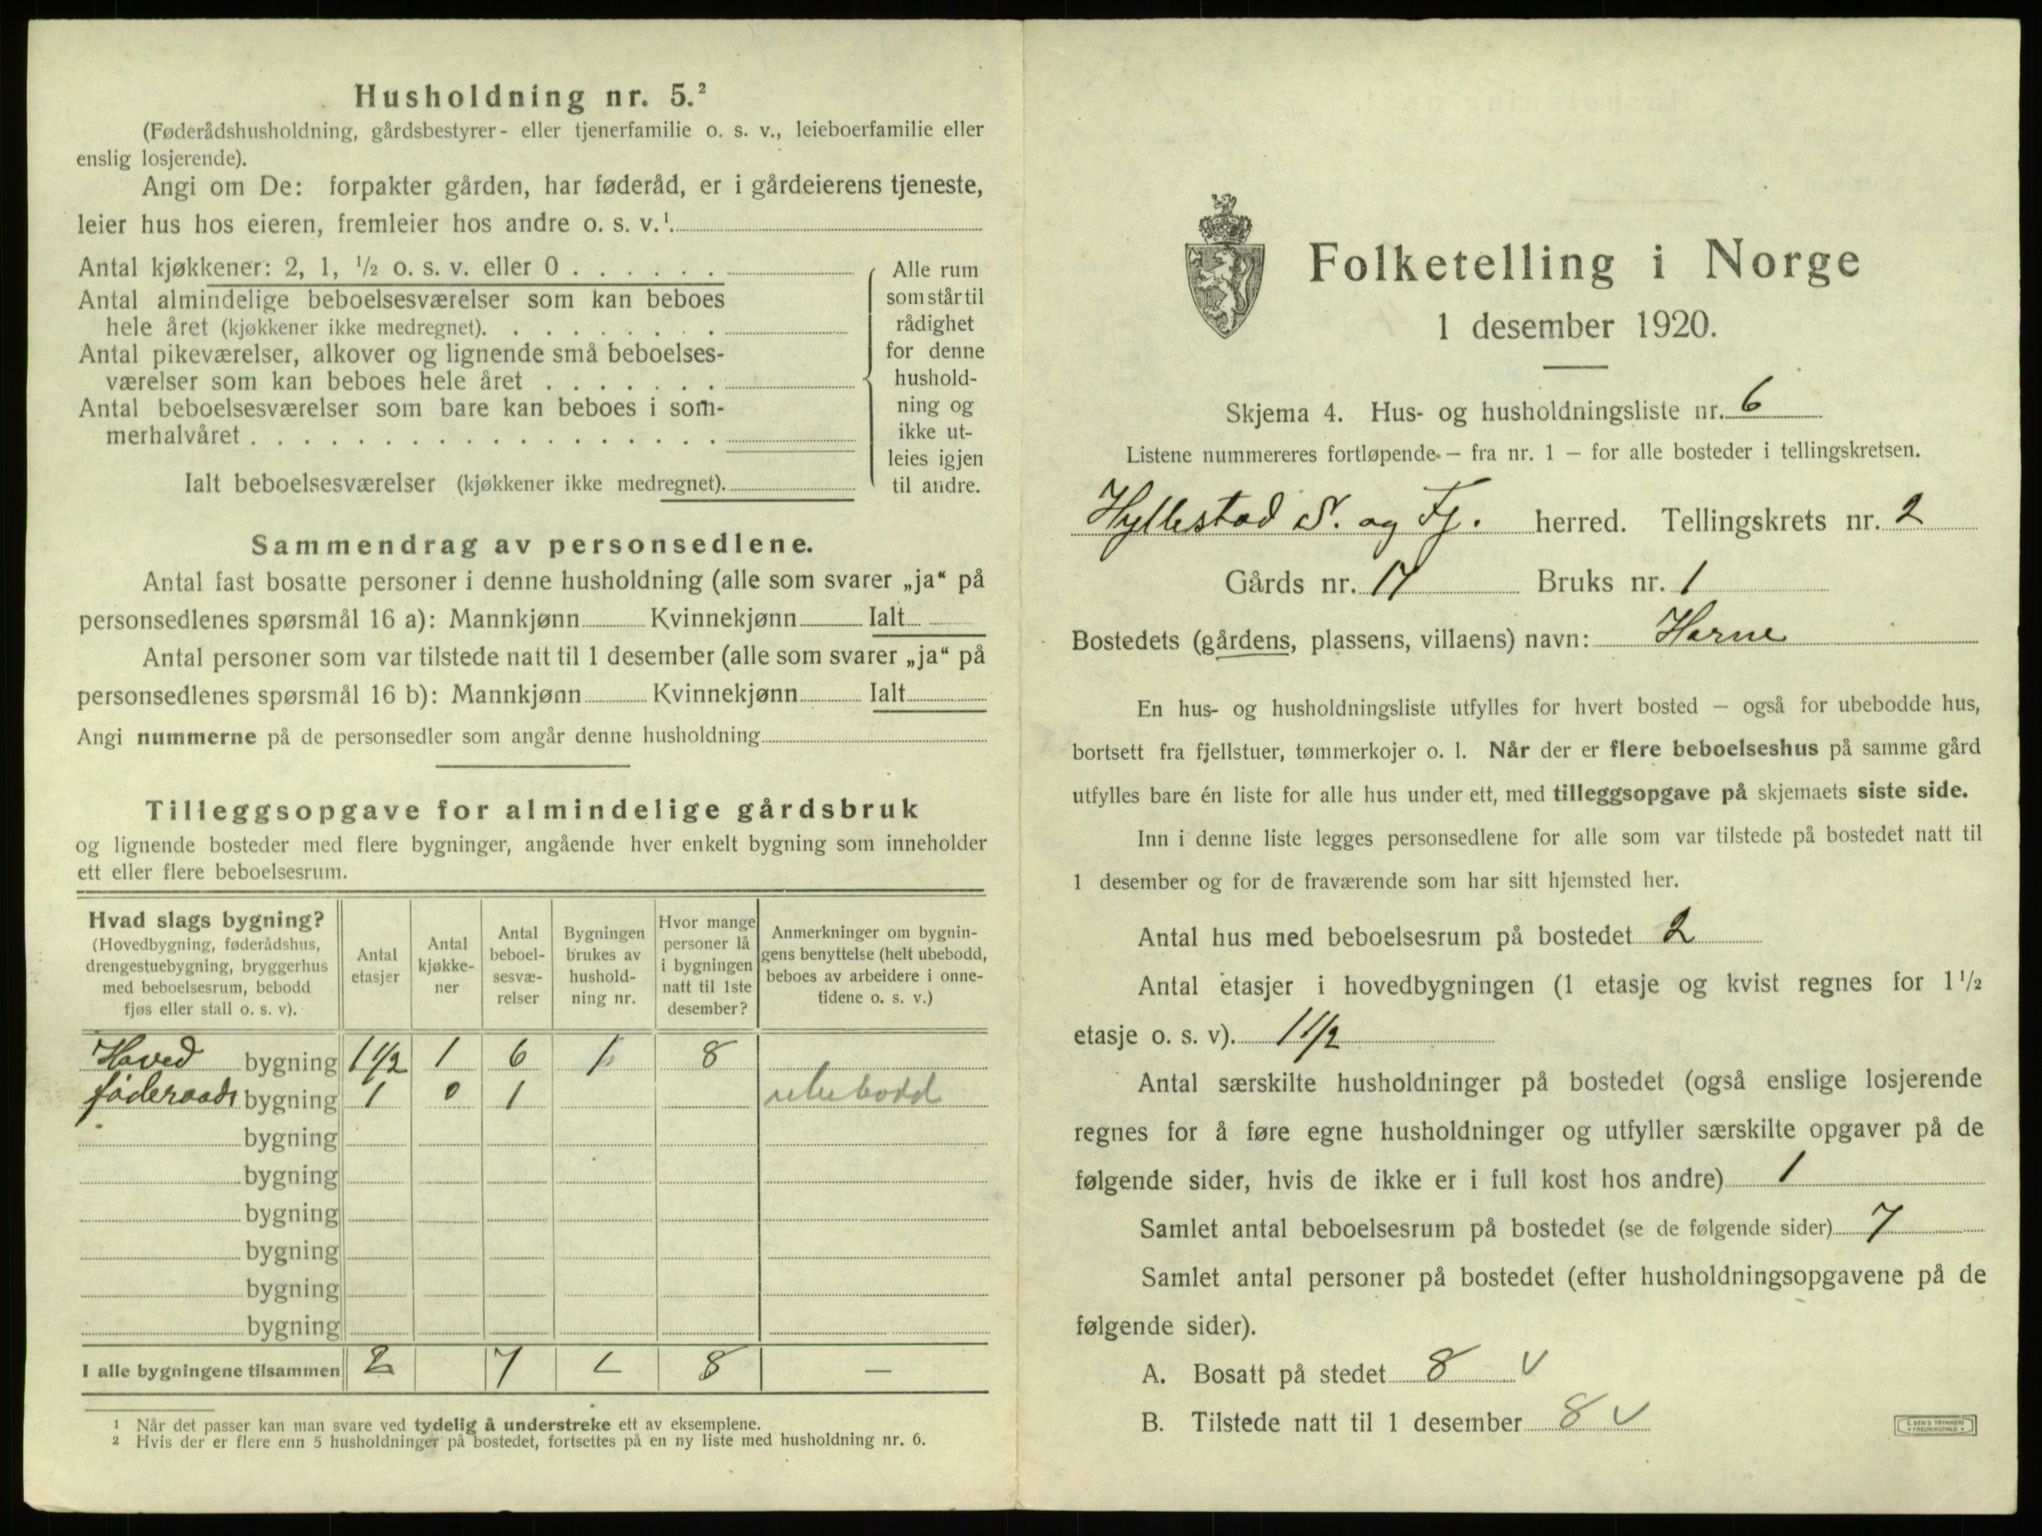 Husholdning nr. 5.²
(Føderådshusholdning, gårdsbestyrer- eller tjenerfamilie o. s. v., leieboerfamilie eller
enslig losjerende).
Angi om De: forpakter gården, har føderåd, er i gårdeierens tjeneste,
leier hus hos eieren, fremleier hos andre o. s. v.¹.
Antal kjøkkener: 2, 1, ½ o. s. v. eller 0 . . . . . .
Antal almindelige beboelsesværelser som kan beboes
hele året (kjøkkener ikke medregnet). . . . . . . . .
Antal pikeværelser, alkover og lignende små beboelses-
værelser som kan beboes hele året . . . . . . .
Antal beboelsesværelser som bare kan beboes i som-
merhalvåret . . . . . . . . . . . . . . . . . .
Ialt beboelsesværelser (kjøkkener ikke medregnet).
Alle rum
som står til
rådighet
for denne
hushold-
ning og
ikke ut-
leies igjen
til andre.
Sammendrag av personsedlene.
Antal fast bosatte personer i denne husholdning (alle som svarer „ja“ på
personsedlenes spørsmål 16 a): Mannkjønn Kvinnekjønn Ialt
Antal personer som var tilstede natt til 1 desember (alle som svarer „ja“ på
personsedlenes spørsmål 16 b): Mannkjønn Kvinnekjønn Ialt
Angi nummerne på de personsedler som angår denne husholdning
Tilleggsopgave for almindelige gårdsbruk
og lignende bosteder med flere bygninger, angående hver enkelt bygning som inneholder
ett eller flere beboelsesrum.
Hvad slags bygning?
(Hovedbygning, føderådshus,
drengestuebygning, bryggerhus
med beboelsesrum, bebodd
fjøs eller stall o. s. v).
Antal
etasjer
Antal
kjøkke-
ner
Antal
beboel-
sesvæ-
relser
Bygningen
brukes av
hushold-
ning nr.
Hvor mange
personer lå
i bygningen
natt til 1ste
desember?
Anmerkninger om bygnin-
gens benyttelse (helt ubebodd,
beboes av arbeidere i onne-
tidene o. s. v.)
Hoved bygning 1 1/2 1 6 1 8
føderaads bygning 1 0 1 ubebodd
bygning
bygning
bygning
bygning
bygning
bygning
I alle bygningene tilsammen 2 7 8 —
¹ Når det passer kan man svare ved tydelig å understreke ett av eksemplene.
² Hvis der er flere enn 5 husholdninger på bostedet, fortsettes på en ny liste med husholdning nr. 6.
Folketelling i Norge
1 desember 1920.
Skjema 4. Hus- og husholdningsliste nr. 6
Listene nummereres fortløpende - fra nr. 1 - for alle bosteder i tellingskretsen.
Hyllestad S. og Fj. herred. Tellingskrets nr. 2
Gårds nr. 17 Bruks nr. 1
Bostedets (gårdens, plassens, villaens) navn: Herne
En hus- og husholdningsliste utfylles for hvert bosted – også for ubebodde hus,
bortsett fra fjellstuer, tømmerkojer o. l. Når der er flere beboelseshus på samme gård
utfylles bare én liste for alle hus under ett, med tilleggsopgave på skjemaets siste side.
Inn i denne liste legges personsedlene for alle som var tilstede på bostedet natt til
1 desember og for de fraværende som har sitt hjemsted her.
Antal hus med beboelsesrum på bostedet 2
Antal etasjer i hovedbygningen (1 etasje og kvist regnes for 1 ½
etasje o. s. v). 1 1/2
Antal særskilte husholdninger på bostedet (også enslige losjerende
regnes for å føre egne husholdninger og utfyller særskilte opgaver på de
følgende sider, hvis de ikke er i full kost hos andre) 1
Samlet antal beboelsesrum på bostedet (se de følgende sider) 7
Samlet antal personer på bostedet (efter husholdningsopgavene på de
følgende sider).
A. Bosatt på stedet 8 v
B. Tilstede natt til 1 desember 8 v